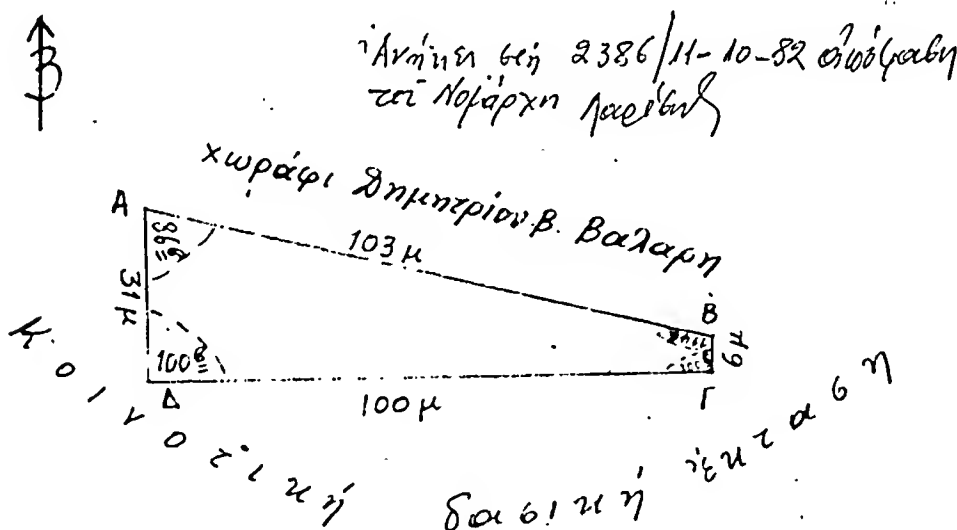 Β
Ἀνήκει στή 2386/11-10-82 ἀπόφαση
τοῦ Νομάρχη Λαρίσης
χωράφι Δημητρίου Β. Βαλαρη
Α
86g
103 μ
31 μ
Β
6 μ
100g
Δ
100 μ
Γ
Κοινοτική δασική ἔκταση